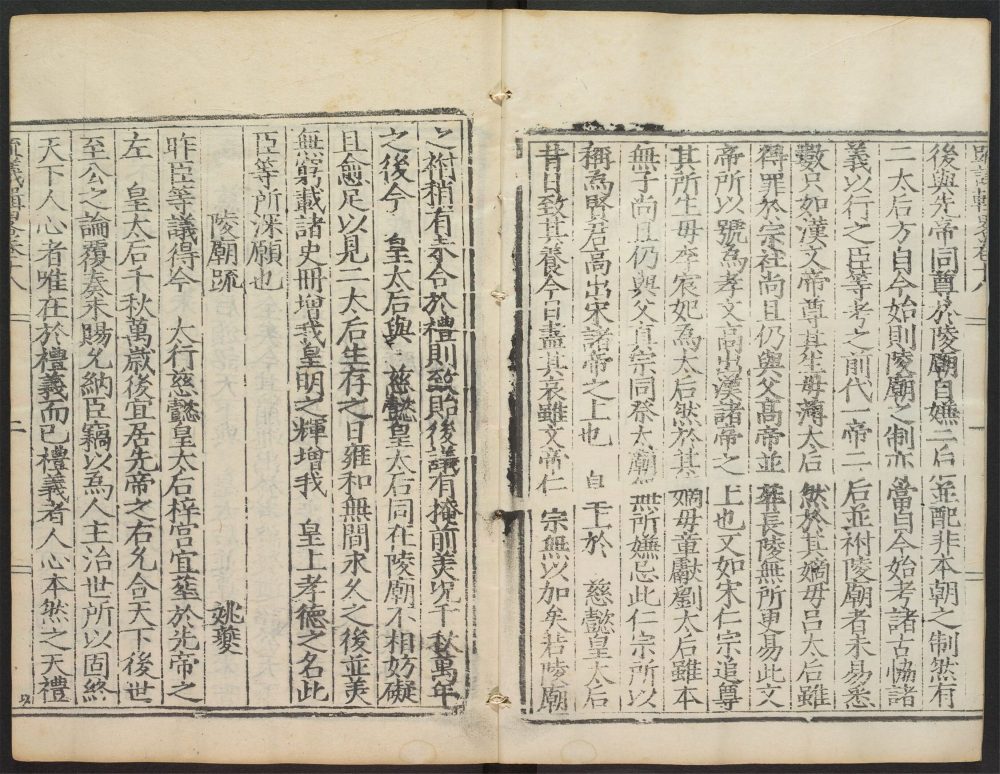 後與先帝同尊於陵廟自嫌二后並配非本朝之制然有
二太后方自今始則陵廟之制亦當自今始考諸古恊諸
義以行之臣等考之前代一帝二后並祔陵廟者未易悉
數只如漢文帝尊其生母薄太后然於其嫡母吕太后雖
得罪於宗社尚且仍與父髙帝並葬長陵無所更易此文
帝所以號為孝文高出漢諸帝之上也又如宋仁宗追尊
其所生母李宸妃為太后然於其嫡母章獻劉太后雖本
無子尚且仍與父真宗同祭太廟無所嫌忌此仁宗所以
稱為賢君高出宋諸帝之上也 皇上於 慈懿皇太后
昔日致其養今日盡其哀雖文帝仁宗無以加矣若陵廟
之祔稍有未合於禮則致節後議有掩前美况千秋萬年
之後今 皇太后與 慈懿皇太后同在陵廟不相妨礙
且愈足以見二太后生存之日雍和無間永久之後並美
無窮載諸史冊增我皇明之輝增我 皇上孝德之名此
臣等所深願也
陵廟疏 姚夔
昨臣等議得今 大行慈懿皇太后梓宮宜葬於先帝之
左 皇太后千秋萬歲後宜居先帝之右允合天下後世
至公之論覆奏未賜允納臣竊以為人主治世所以固終
天下人心者唯在於禮義而已禮義者人心本然之天禮